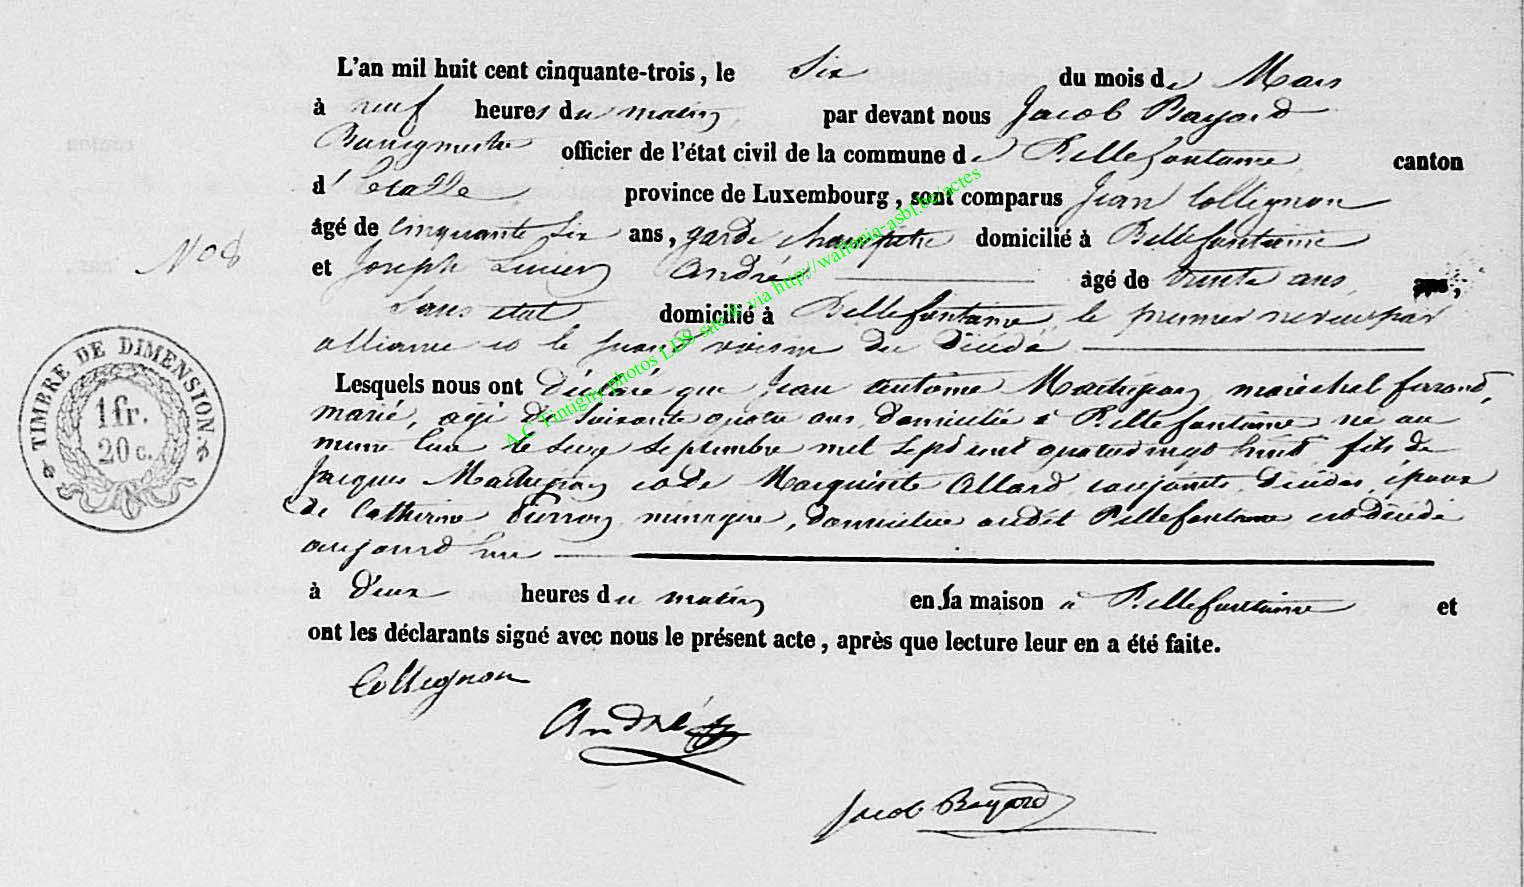 L'an mil huit cent cinquante-trois, le Six du mois de Mars
à neuf heures du matin, par devant nous Jacob Bayard
Bourgmestre officier de l'état civil de la commune de Bellefontaine, canton
d'Etalle, province de Luxembourg, sont comparus Jean Collignon
âgé de cinquante six ans, garde champêtre domicilié à Bellefontaine
N° 8
et Joseph Lucien André âgé de trente ans, ans,
Sans état domicilié à Bellefontaine, le premier neveu par
alliance et le second voisin du décédé
Lesquels nous ont déclaré que Jean antoine marêchal ferrand,
marié, agé de soixante quatre ans, domicilié à Bellefontaine né au
même lieu le seize septembre mil sept cent quatrevingt huit fils de
Jacques et de Marguerite Allard, conjoints, décédés, époux
de Catherine Pierron, ménagère, domiciliée audit Bellefontaine est décédé
aujourd'hui
à deux heures du matin en sa maison à Bellefontaine et
ont les déclarants signé avec nous le présent acte, après que lecture leur en a été faite.
Collignon
André
Jacob Bayard
TIMBRE DE DIMENSION.
1 fr.
20 c.
A.C Tintigny photos LDS site & via http://wallonia-asbl.be/actes